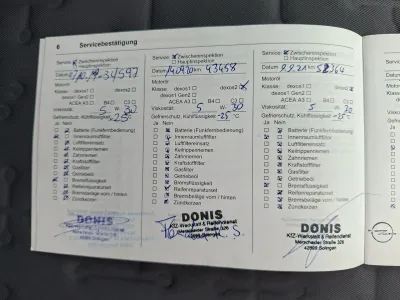 6 Servicebestätigung
Service: Zwischeninspektion
Hauptinspektion
Datum km 34597
Motoröl
Klasse: dexos1 dexos2
dexos1 Gen2
ACEA A3 B4 C3
Viskosität: 5 W 30
Gefrierschutz, Kühlflüssigkeit -25 °C
Ja Nein
Batterie (Funkfernbedienung)
Innenraumluftfilter
Luftfiltereinsatz
Keilrippenriemen
Zahnriemen
Kraftstofffilter
Gasfilter
Getriebeöl
Bremsflüssigkeit
Reifenreparaturset
Bremsbeläge vorn / hinten
Zündkerzen
DONIS
KFZ-Werkstatt & Reifendienst
Merscheider Straße 326
42699 Solingen
Service: Zwischeninspektion
Hauptinspektion
Datum km 43458
Motoröl
Klasse: dexos1 dexos2
dexos1 Gen2
ACEA A3 B4 C3
Viskosität: 5 W 30
Gefrierschutz, Kühlflüssigkeit -25 °C
Ja Nein
Batterie (Funkfernbedienung)
Innenraumluftfilter
Luftfiltereinsatz
Keilrippenriemen
Zahnriemen
Kraftstofffilter
Gasfilter
Getriebeöl
Bremsflüssigkeit
Reifenreparaturset
Bremsbeläge vorn / hinten
Zündkerzen
DONIS
KFZ-Werkstatt & Reifendienst
Merscheider Straße 326
42699 Solingen
Service: Zwischeninspektion
Hauptinspektion
Datum 9.9.21 km 52364
Motoröl
Klasse: dexos1 dexos2
dexos1 Gen2
ACEA A3 B4 C3
Viskosität: 5 W 30
Gefrierschutz, Kühlflüssigkeit -25 °C
Ja Nein
Batterie (Funkfernbedienung)
Innenraumluftfilter
Luftfiltereinsatz
Keilrippenriemen
Zahnriemen
Kraftstofffilter
Gasfilter
Getriebeöl
Bremsflüssigkeit
Reifenreparaturset
Bremsbeläge vorn / hinten
Zündkerzen
DONIS
KFZ-Werkstatt & Reifendienst
Merscheider Straße 326
42699 Solingen